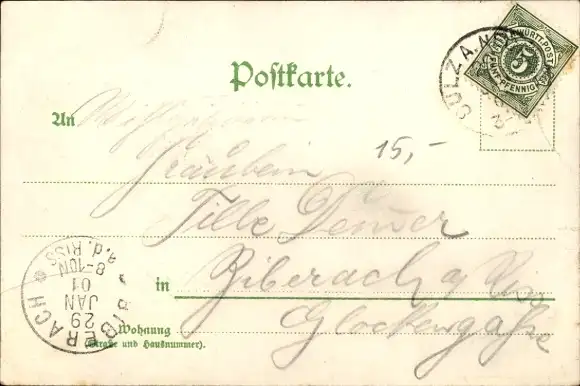 Postkarte.
SULZ A.N.
K. WÜRTT. POST
5
FÜNF PFENNIG
An
15,-
Fräulein
Tille Denner
in Biberach a/ Riss
Glockengasse
Wohnung
(Straße und Hausnummer).
BIBERACH
29
JAN
01
8-10N
a.d. RISS